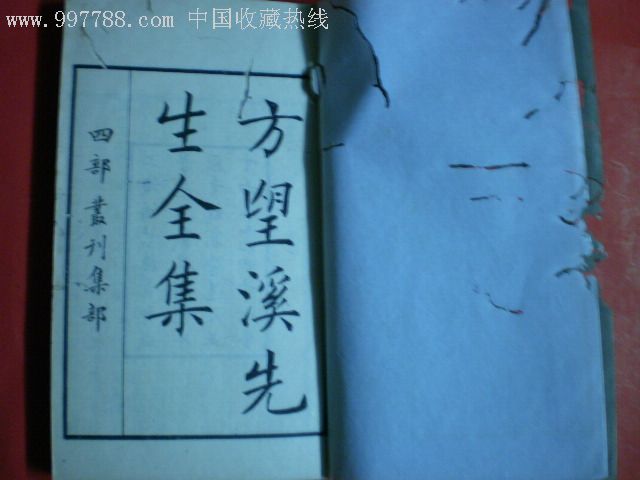 www.997788.com 中国收藏热线
方望溪先
生全集
四部叢刊集部